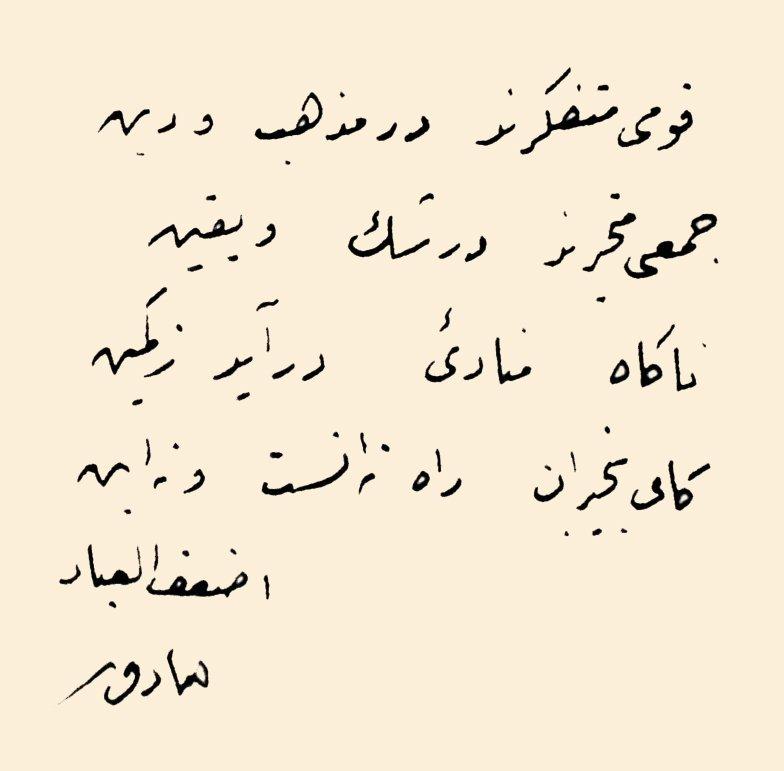 قومی متفکرند در مذهب و دین
جمعی متحیرند در شک و یقین
ناکاه منادئ در آید ز کمین
کای بیخبران راه نه آنست و نه این
اضعف العباد